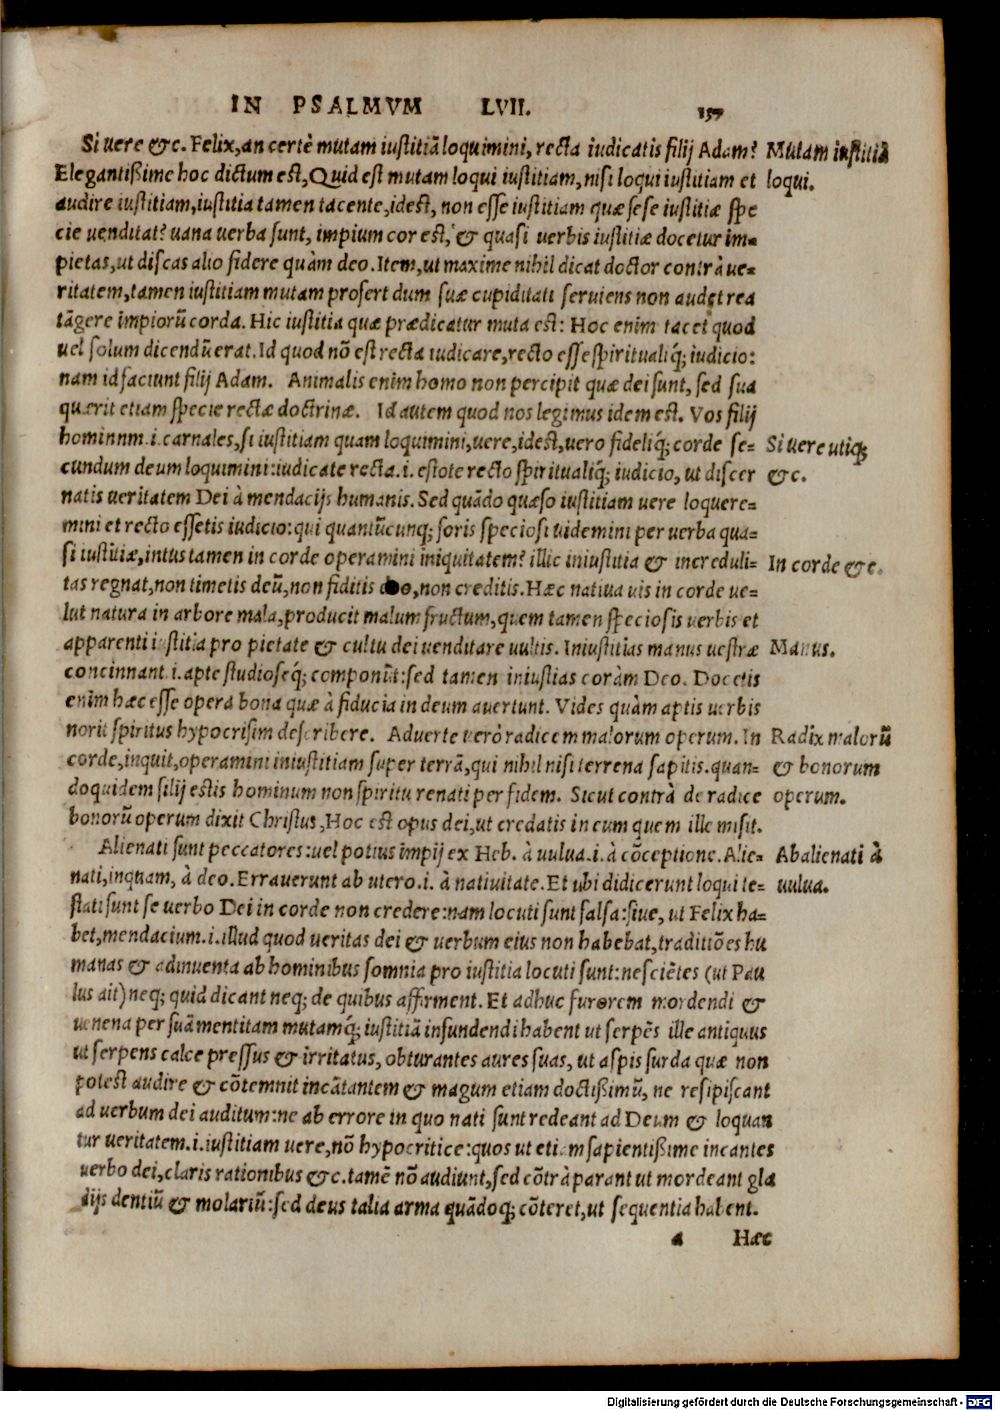 IN PSALMVM LVII. 157
Si uere &c. Felix, an certè mutam iustitiã loquimini, recta iudicatis filij Adam? Mutam iustitiã
Elegantißime hoc dictum est, Quid est mutam loqui iustitiam, nisi loqui iustitiam et loqui.
audire iustitiam, iustitia tamen tacente, idest, non esse iustitiam quæ sese iustitiæ spe
cie uenditat? uana uerba sunt, impium cor est, & quasi uerbis iustitiæ docetur im=
pietas, ut discas alio fidere quàm deo. Item, ut maxime nihil dicat doctor contrà ue=
ritatem, tamen iustitiam mutam profert dum suæ cupiditati seruiens non audet rea
tãgere impiorũ corda. Hic iustitia quæ prædicatur muta est: Hoc enim tacet quod
uel solum dicendũ erat. Id quod nõ est recta iudicare, recto esse spiritualiq; iudicio:
nam id faciunt filij Adam. Animalis enim homo non percipit quæ dei sunt, sed sua
quærit etiam specie rectæ doctrinæ. Id autem quod nos legimus idem est. Vos filij
hominnm .i. carnales, si iustitiam quam loquimini, uere, idest, uero fideliq; corde se= Si uere utiq;
cundum deum loquimini: iudicate recta .i. estote recto spiritualiq; iudicio, ut discer &c.
natis ueritatem Dei à mendacijs humanis. Sed quãdo quæso iustitiam uere loquere=
mini et recto essetis iudicio: qui quantũcunq; foris speciosi uidemini per uerba qua=
si iustitiæ, intus tamen in corde operamini iniquitatem? illic iniustitia & increduli= In corde &c.
tas regnat, non timetis deũ, non fiditis deo, non creditis. Hæc natiua uis in corde ue=
lut natura in arbore mala, producit malum fructum, quem tamen speciosis uerbis et
apparenti iustitia pro pietate & cultu dei uenditare uultis. Iniustitias manus uestræ Manus.
concinnant .i. apte studioseq́; componũt: sed tamen iniustias coràm Deo. Docetis
enim hæc esse opera bona quæ à fiducia in deum auertunt. Vides quàm aptis uerbis
norit spiritus hypocrisim describere. Aduerte uerò radicem malorum operum. In Radix malorũ
corde, inquit, operamini iniustitiam super terrã, qui nihil nisi terrena sapitis. quan= & bonorum
doquidem filij estis hominum non spiritu renati per fidem. Sicut contrà de radice operum.
bonorũ operum dixit Christus, Hoc est opus dei, ut credatis in eum quem ille misit.
Alienati sunt peccatores: uel potius impij ex Heb. à uulua .i. à cõceptione. Alie= Abalienati à
nati, inquam, à deo. Errauerunt ab utero .i. à natiuitate. Et ubi didicerunt loqui te= uulua.
stati sunt se uerbo Dei in corde non credere: nam locuti sunt falsa: siue, ut Felix ha=
bet, mendacium .i. illud quod ueritas dei & uerbum eius non habebat, traditiões hu
manas & adinuenta ab hominibus somnia pro iustitia locuti sunt: nesciẽtes (ut Pau
lus ait) neq; quid dicant neq; de quibus affirment. Et adhuc furorem mordendi &
uenena per suã mentitam mutamq́; iustitiã infundendi habent ut serpẽs ille antiquus
ut serpens calce pressus & irritatus, obturantes aures suas, ut aspis surda quæ non
potest audire & cõtemnit incãtantem & magum etiam doctißimũ, ne resipiscant
ad uerbum dei auditum: ne ab errore in quo nati sunt redeant ad Deum & loquan
tur ueritatem .i. iustitiam uere, nõ hypocritice: quos ut etiam sapientißime incantes
uerbo dei, claris rationibus &c. tamẽ nõ audiunt, sed cõtrà parant ut mordeant gla
dijs dentiũ & molariũ: sed deus talia arma quãdoq; cõteret, ut sequentia habent.
a Hæc
Digitalisierung gefördert durch die Deutsche Forschungsgemeinschaft - DFG